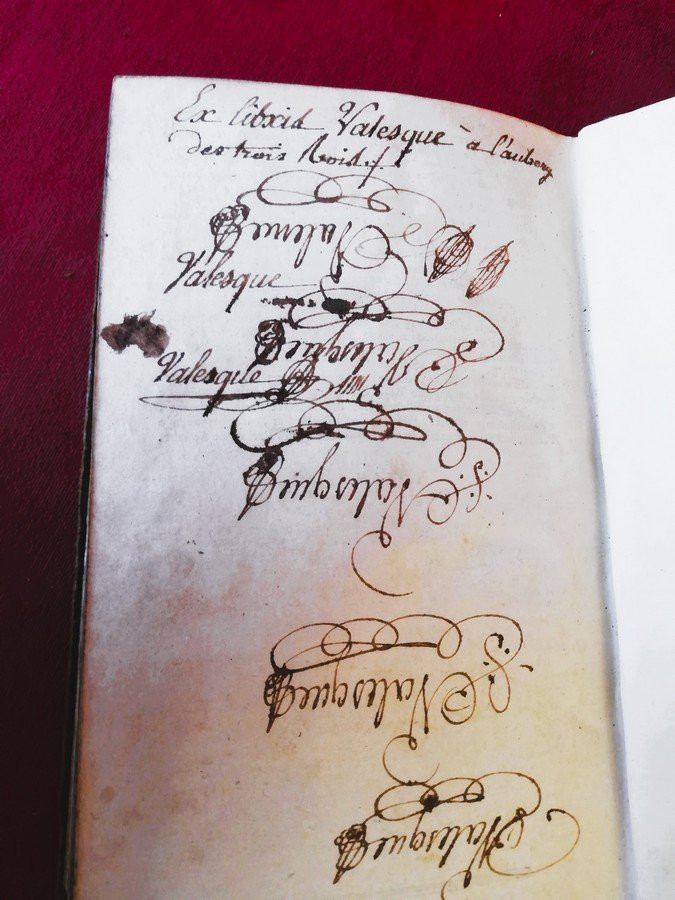 Ex libris Valesque à l'auberg
des trois Rois./.
Valesque
Valesque
Valesque
J: Valesque
J: Valesque
Valesque